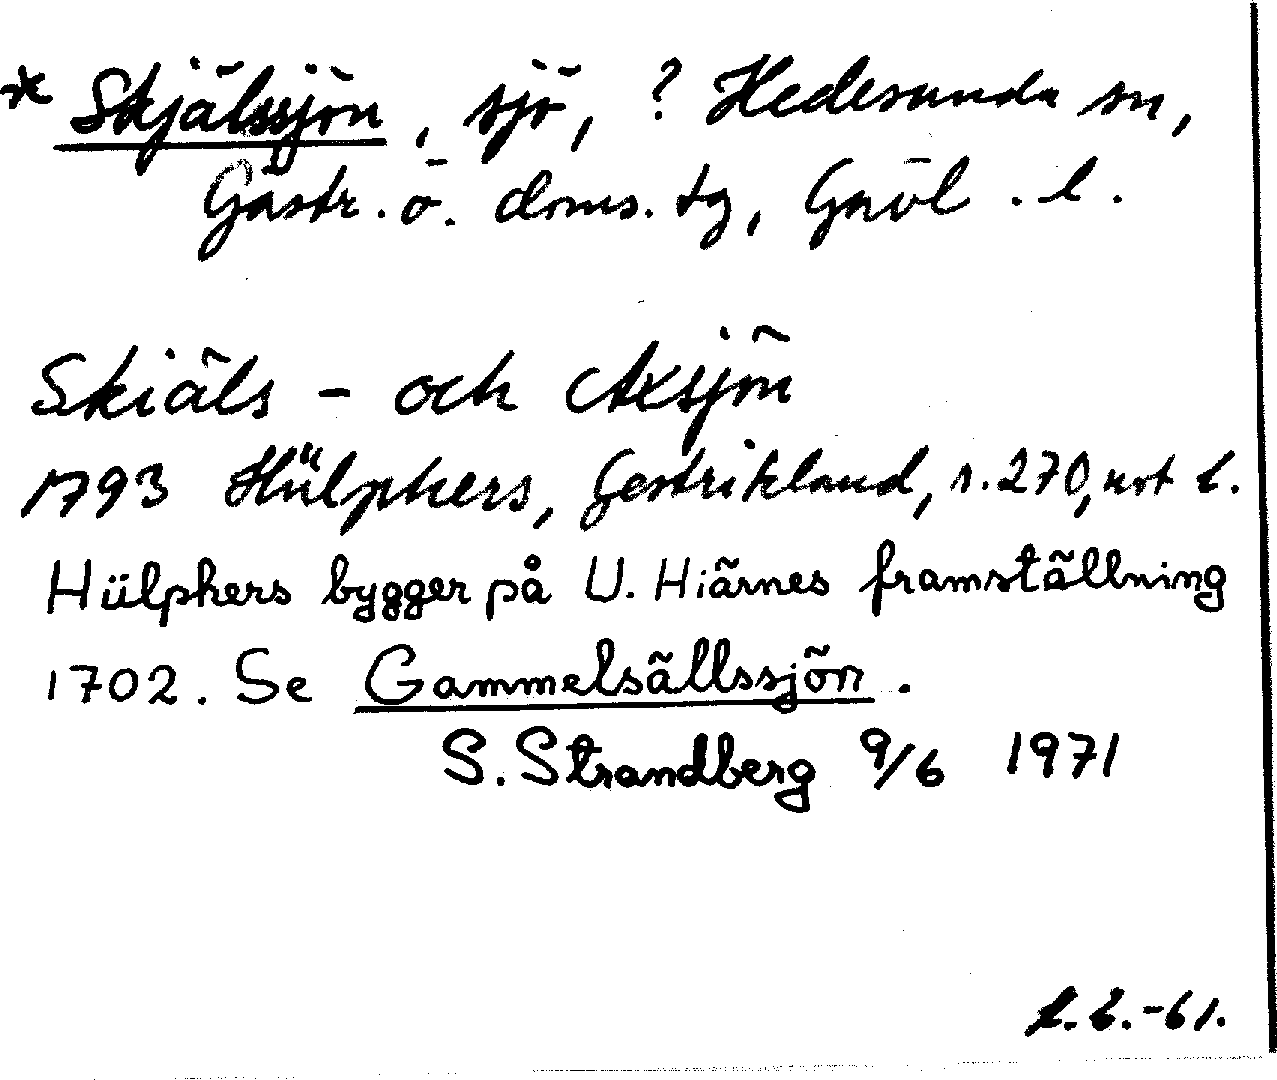 * Skjälssjön, sjö, ? Hedesunda sn,
Gästr. ö. doms. tg, Gävl. l.
Skiäls - och Axsjön
1793 Hülphers, Gestrikland, s. 270, not b.
Hülphers bygger på U. Hiärnes framställning
1702. Se Gammelsällssjön.
S. Strandberg 9/6 1971
-61.